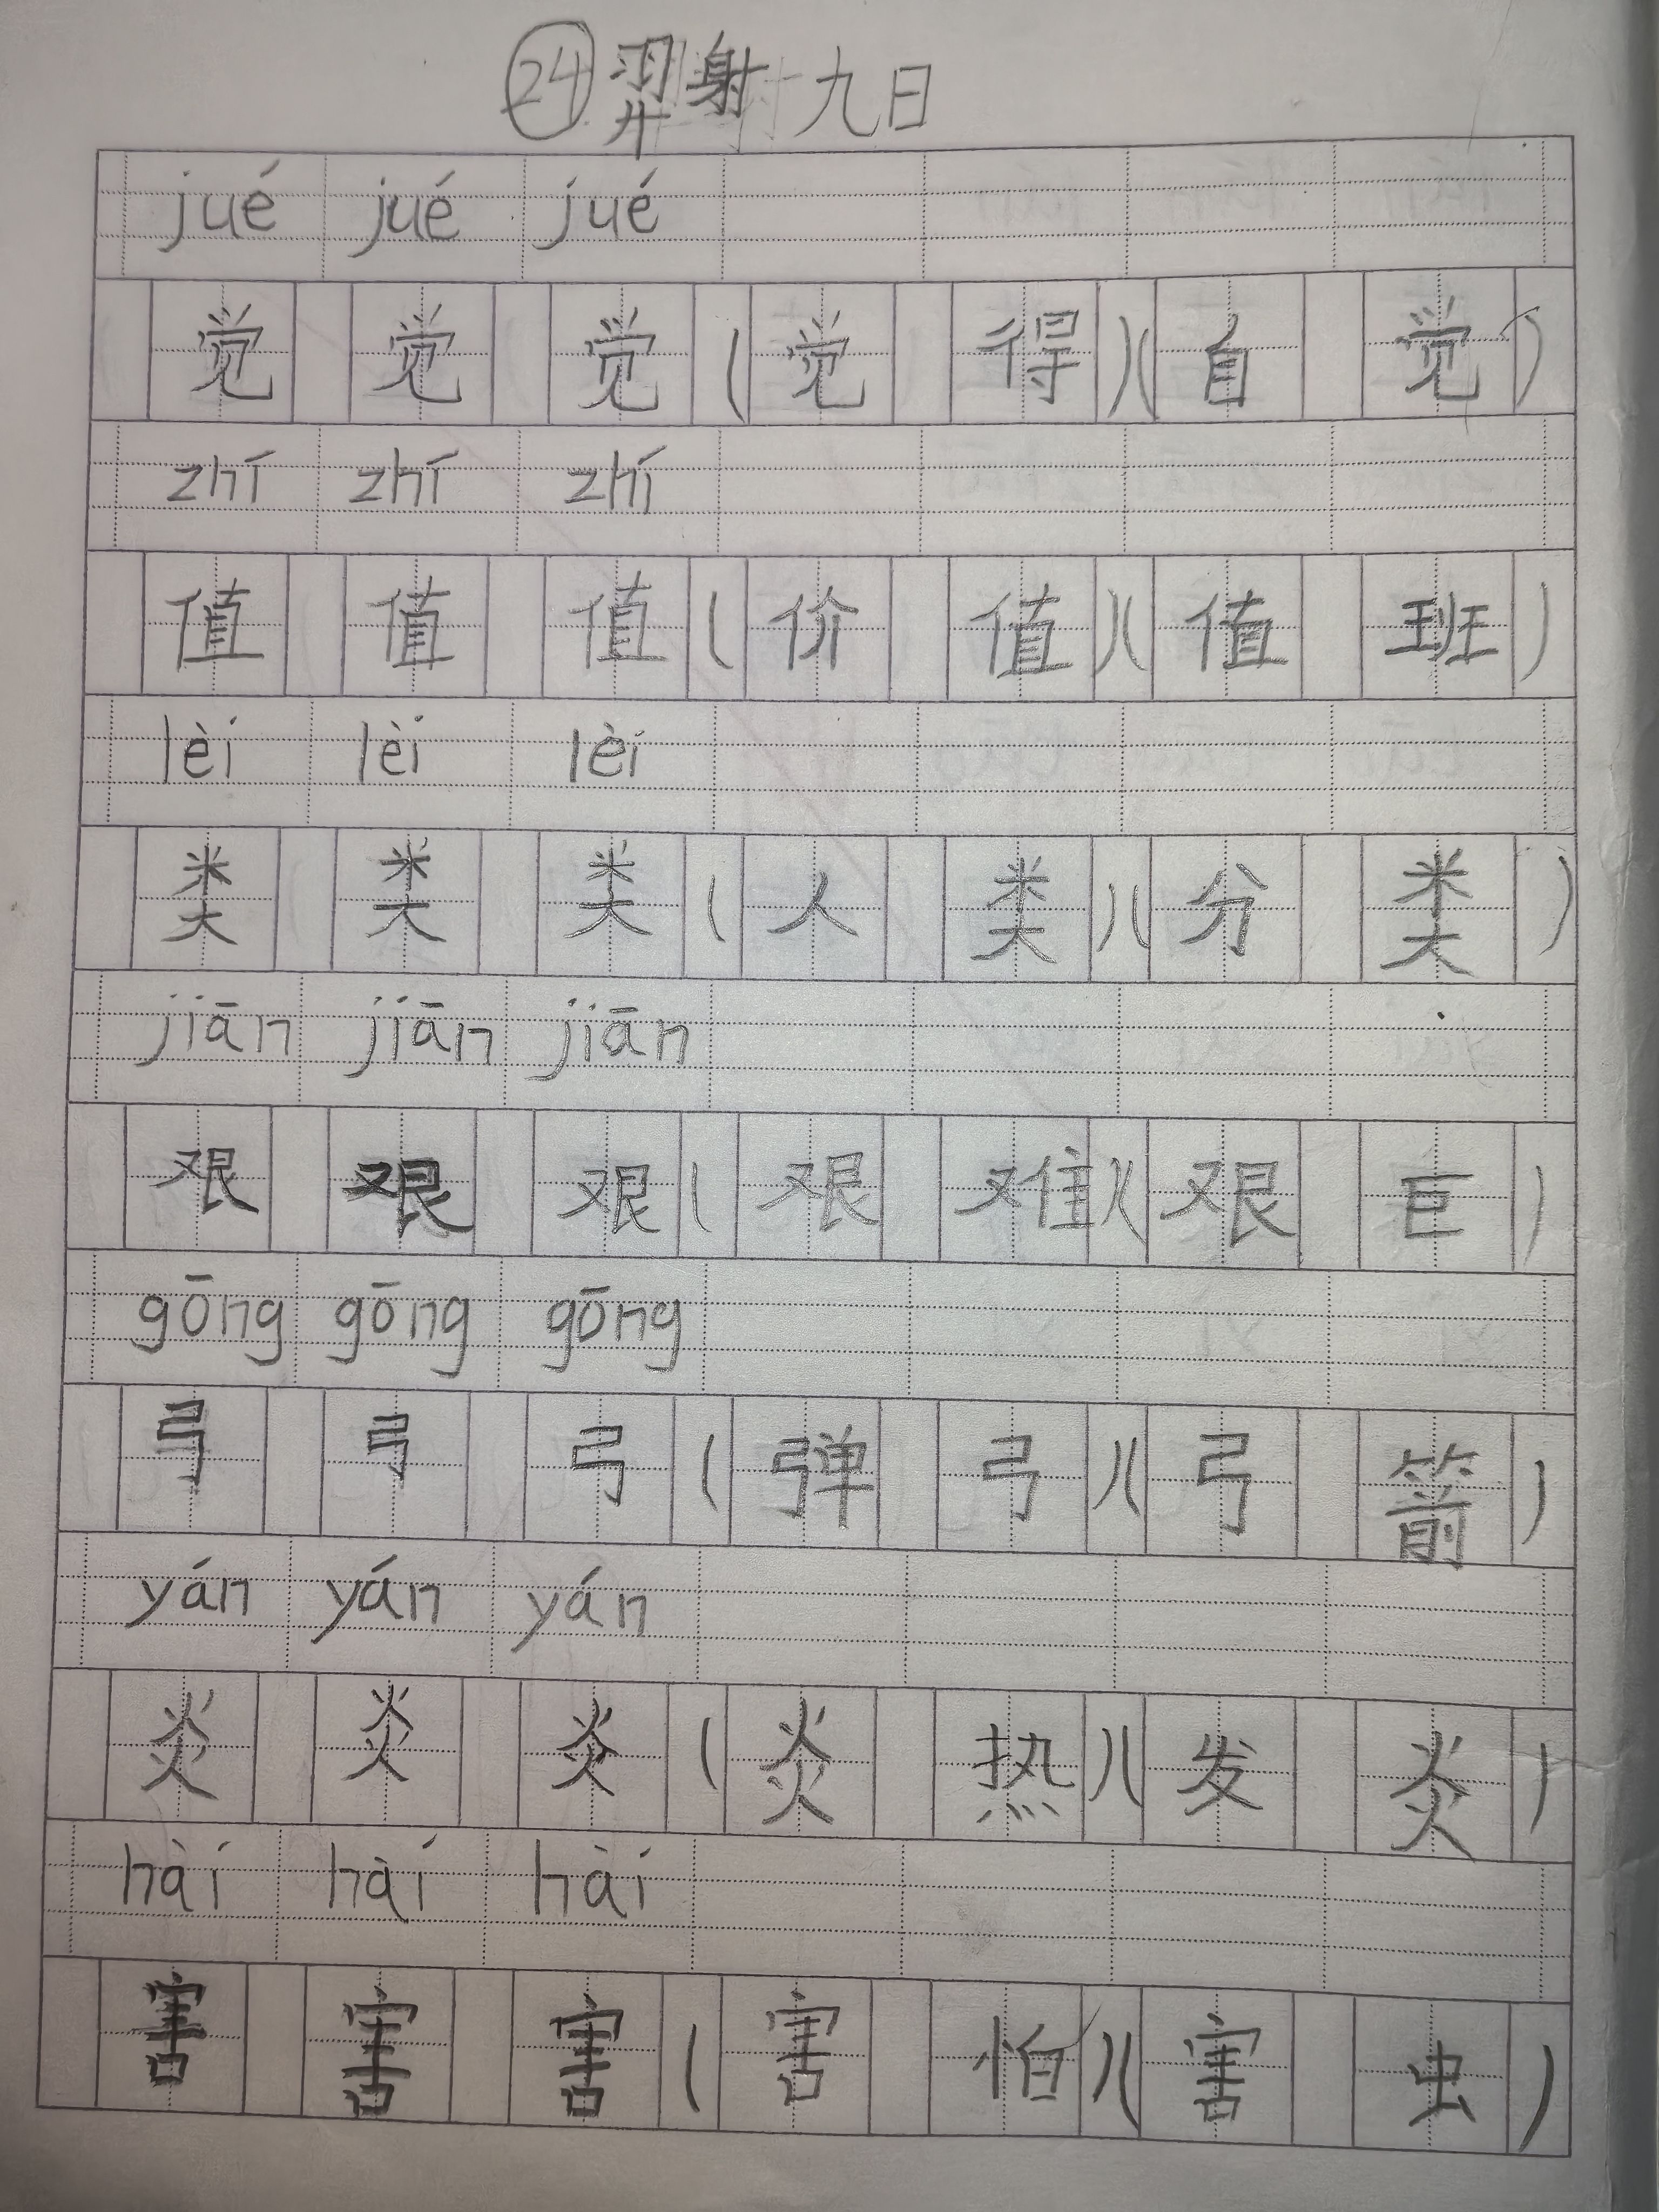 24 羿射九日
jué jué jué
觉 觉 觉 (觉 得)(自 觉)
zhí zhí zhí
值 值 值 (价 值)(值 班)
lèi lèi lèi
类 类 类 (人 类)(分 类)
jiān jiān jiān
艰 艰 艰 (艰 难)(艰 巨)
gōng gōng gōng
弓 弓 弓 (弹 弓)(弓 箭)
yán yán yán
炎 炎 炎 (炎 热)(发 炎)
hài hài hài
害 害 害 (害 怕)(害 虫)